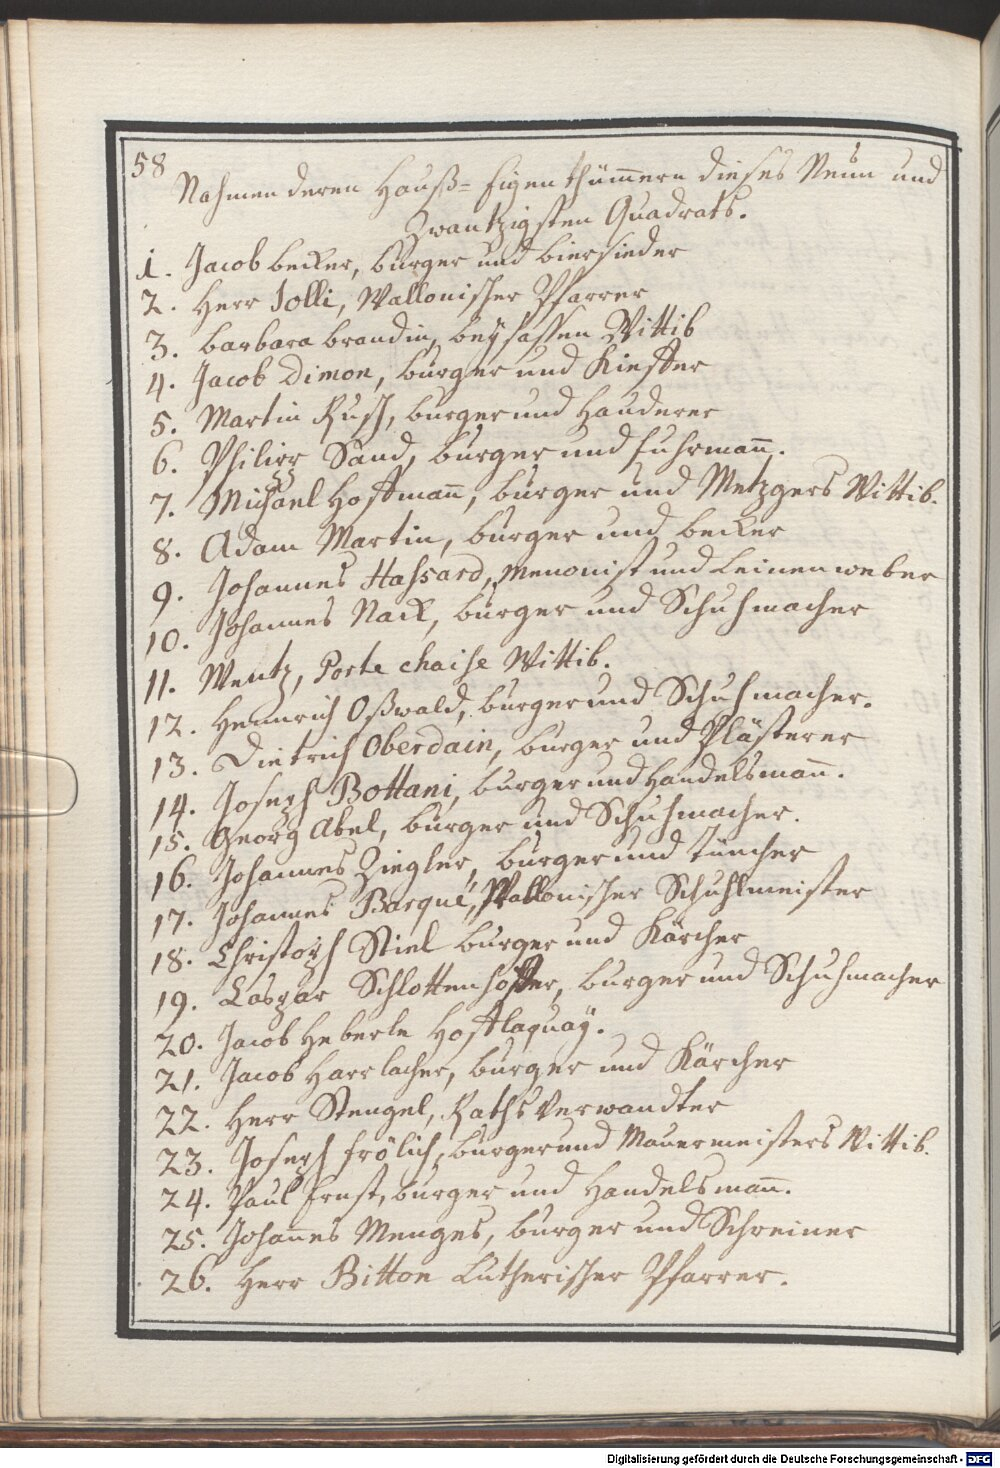 58
Nahmen deren Hauß=Eigenthümern dieses Neün und
Zwantzigsten Quadrats.
1. Jacob Becker, burger und biersieder
2. Herr Jolli, Wallonischer Pfarrer
3. barbara brandin, beysassen Wittib
4. Jacob Dimon, burger und Kieffer
5. Martin Rusch, burger und Hauderer
6. Philipp Sand, burger und fuhrman̄.
7. Michael Hoffman̄, burger und Metzgers Wittib.
8. Adam Martin, burger und becker
9. Johannes Hassard, Menonist und Leinenweber
10. Johannes Nack, burger und Schuhmacher
11. Wentz, Porte chaise Wittib.
12. Hennrich Oßwald, burger und Schuhmacher.
13. Dietrich Oberdain, burger und Plästerer
14. Joseph Bottani, burger und Handelsman̄.
15. Georg Abel, burger und Schuhmacher.
16. Johannes Ziegler, burger und Tüncher
17. Johannes Barqué, Wallonischer Schuhlmeister
18. Christoph Stiel burger und Kärcher
19. Caspar Schlottenhoffer, burger und Schuhmacher
20. Jacob Heberle Hofflaquay.
21. Jacob Harrlacher, burger und Kärcher
22. Herr Stengel, Raths Verwandter
23. Joseph frölich, burger und Mauermeisters Wittib.
24. Paul Ernst, burger und Handelsman̄.
25. Johan̄es Menges, burger und Schreiner
26. Herr Bitton Lutherischer Pfarrer.
Digitalisierung gefördert durch die Deutsche Forschungsgemeinschaft - DFG